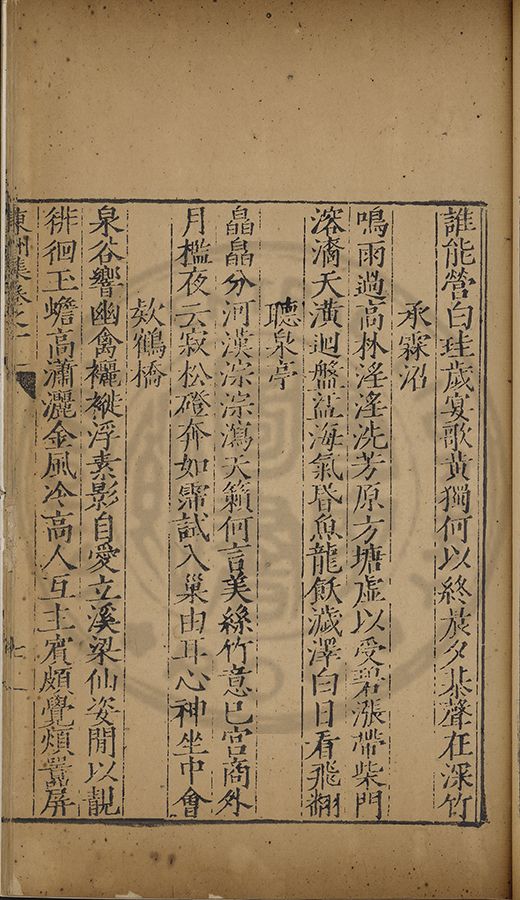 誰能營白珪歲宴歌黃獨何以終晨夕棊聲在深竹
承霖沼
鳴雨過高林淫淫洗芳原方塘虛以受碧漲帶柴門
溶漪天潢迴盤盓海氣昏魚龍飫濊澤白日看飛翻
聽泉亭
皛皛分河漢淙淙瀉天籟何言美絲竹意已宮商外
月檻夜云寂松磴奔如霈試入巢由耳心神坐中會
欸鶴橋
泉谷響幽禽襹褷浮素影自愛立溪梁仙姿閒以靚
徘徊玉蟾高瀟灑金風冷高人互主賓頗覺煩囂屏
東州集卷之十一